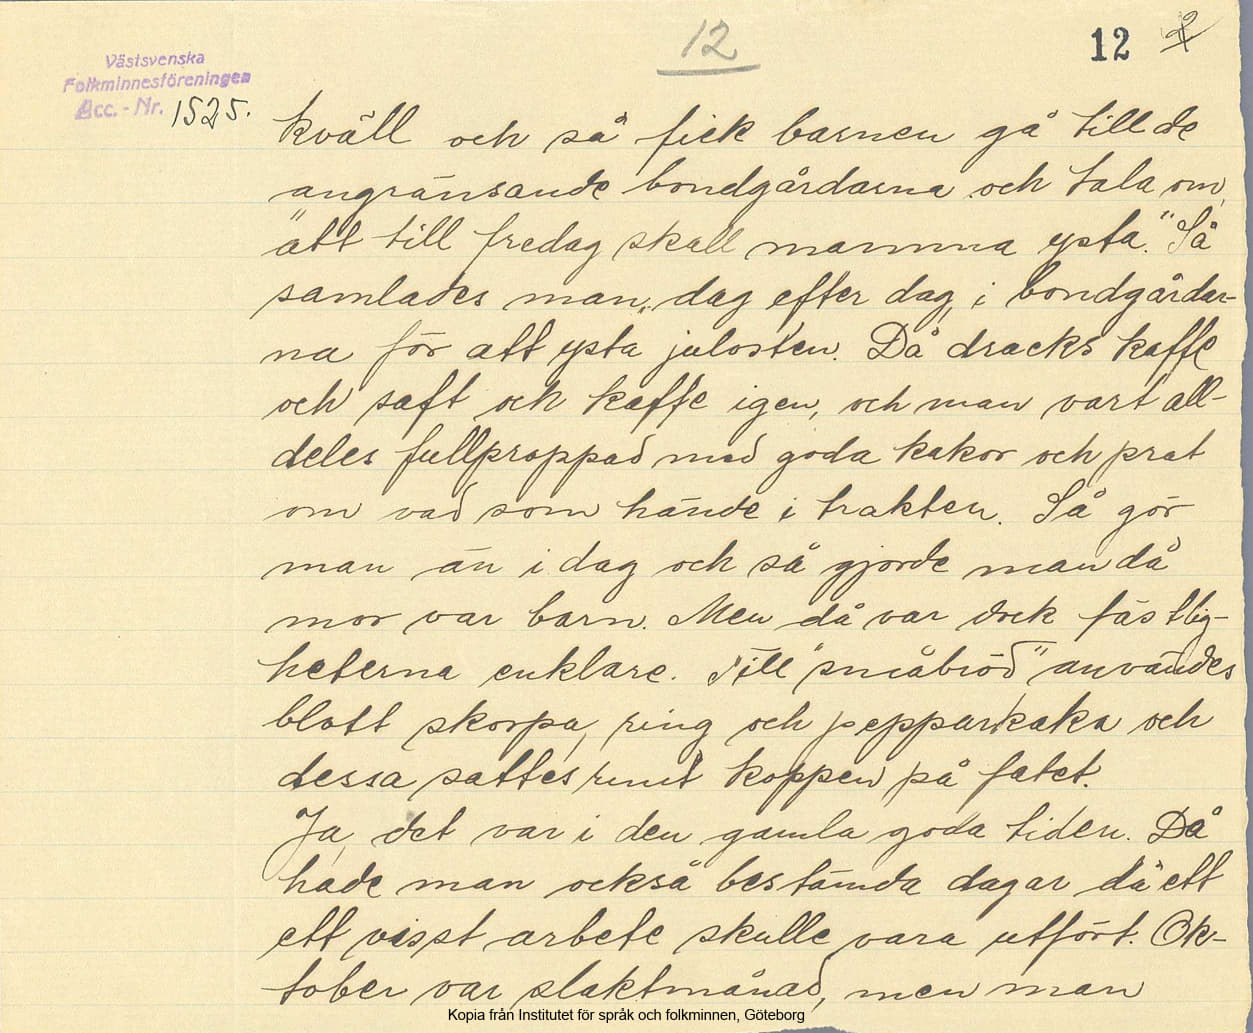 12
12
Västsvenska
Folkminnesföreningen
Acc.-Nr. 1525.
kväll och så fick barnen gå till de
angränsande bondgårdarna och tala om,
"att till fredag skall mamma ysta." Så
samlades man, dag efter dag, i bondgårdar-
na för att ysta julosten. Då dracks kaffe
och saft och kaffe igen, och man vart all-
deles fullproppad med goda kakor och prat
om vad som hände i trakten. Så gör
man än i dag och så gjorde man då
mor var barn. Men då var dock fästlig-
heterna enklare. Till "småbröd" användes
blott skorpa, ring och pepparkaka och
dessa sattes runt koppen på fatet.
Ja, det var i den gamla goda tiden. Då
hade man också bestämda dagar då ett
ett visst arbete skulle vara utfört. Ok-
tober var slaktmånad, men man
Kopia från Institutet för språk och folkminnen, Göteborg